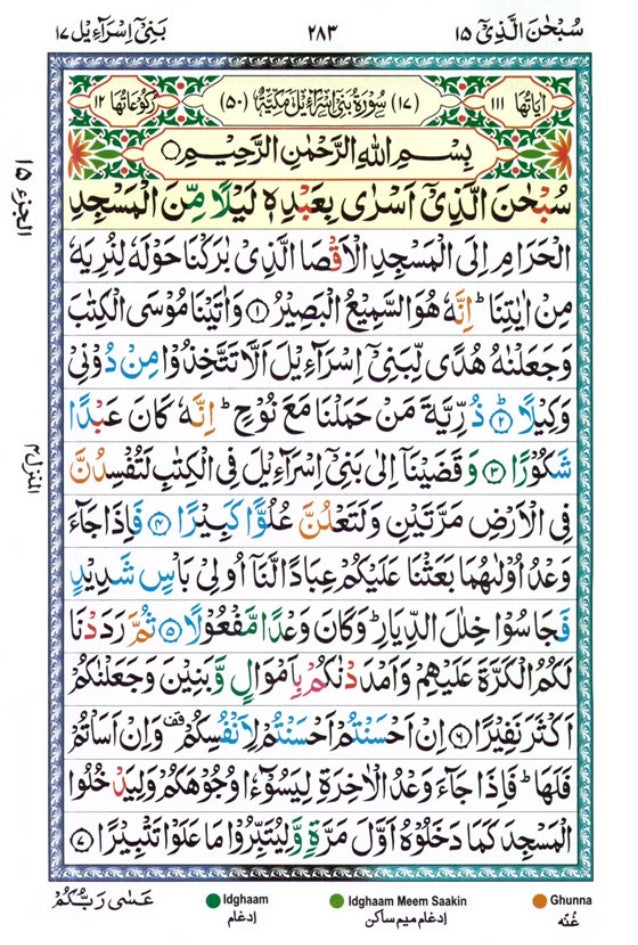 سُبْحٰنَ الَّذِىْٓ ١٥
٢٨٣
بَنِىْٓ اِسْرَآءِيْل ١٧
اٰيَاتُهَا ١١١
(١٧) سُوْرَةُ بَنِىْٓ اِسْرَآءِيْلَ مَكِّيَّةٌ (٥٠)
رُكُوْعَاتُهَا ١٢
بِسْمِ اللّٰهِ الرَّحْمٰنِ الرَّحِيْمِ ○
سُبْحٰنَ الَّذِىْٓ اَسْرٰى بِعَبْدِهٖ لَيْلًا مِّنَ الْمَسْجِدِ
الْحَرَامِ اِلَى الْمَسْجِدِ الْاَقْصَا الَّذِىْ بٰرَكْنَا حَوْلَهٗ لِنُرِيَهٗ
مِنْ اٰيٰتِنَا ؕ اِنَّهٗ هُوَ السَّمِيْعُ الْبَصِيْرُ ﴿١﴾ وَاٰتَيْنَا مُوْسَى الْكِتٰبَ
وَجَعَلْنٰهُ هُدًى لِّبَنِىْٓ اِسْرَآءِيْلَ اَلَّا تَتَّخِذُوْا مِنْ دُوْنِىْ
وَكِيْلًا ﴿٢﴾ ذُرِّيَّةَ مَنْ حَمَلْنَا مَعَ نُوْحٍ ؕ اِنَّهٗ كَانَ عَبْدًا
شَكُوْرًا ﴿٣﴾ وَقَضَيْنَآ اِلٰى بَنِىْٓ اِسْرَآءِيْلَ فِى الْكِتٰبِ لَتُفْسِدُنَّ
فِى الْاَرْضِ مَرَّتَيْنِ وَلَتَعْلُنَّ عُلُوًّا كَبِيْرًا ﴿٤﴾ فَاِذَا جَآءَ
وَعْدُ اُوْلٰىهُمَا بَعَثْنَا عَلَيْكُمْ عِبَادًا لَّنَآ اُولِىْ بَاْسٍ شَدِيْدٍ
فَجَاسُوْا خِلٰلَ الدِّيَارِ ؕ وَكَانَ وَعْدًا مَّفْعُوْلًا ﴿٥﴾ ثُمَّ رَدَدْنَا
لَكُمُ الْكَرَّةَ عَلَيْهِمْ وَاَمْدَدْنٰكُمْ بِاَمْوَالٍ وَّبَنِيْنَ وَجَعَلْنٰكُمْ
اَكْثَرَ نَفِيْرًا ﴿٦﴾ اِنْ اَحْسَنْتُمْ اَحْسَنْتُمْ لِاَنْفُسِكُمْ ۫ وَاِنْ اَسَاْتُمْ
فَلَهَا ؕ فَاِذَا جَآءَ وَعْدُ الْاٰخِرَةِ لِيَسُوْٓءٗا وُجُوْهَكُمْ وَلِيَدْخُلُوا
الْمَسْجِدَ كَمَا دَخَلُوْهُ اَوَّلَ مَرَّةٍ وَّلِيُتَبِّرُوْا مَا عَلَوْا تَتْبِيْرًا ﴿٧﴾
الجزء ١٥
المنزل ٤
عَسٰى رَبُّكُمْ
Idghaam
ادغام
Idghaam Meem Saakin
ادغام میم ساکن
Ghunna
غنّه